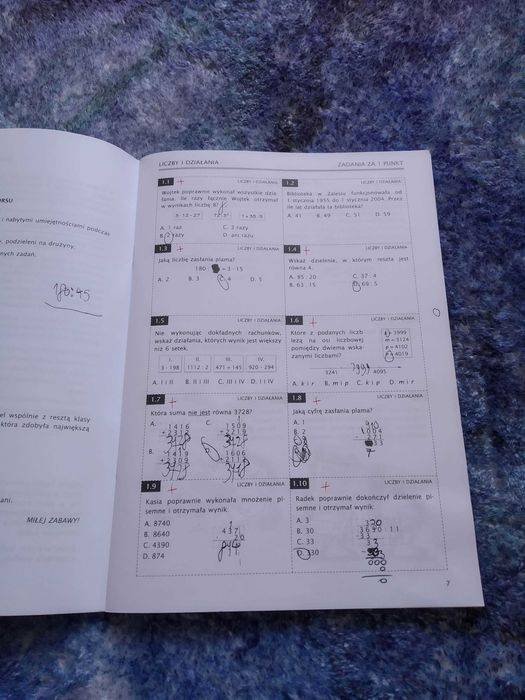 ORSU
i nabytymi umiejętnościami podczas
podzieleni na drużyny.
nych zadań.
18:45
el wspólnie z resztą klasy
która zdobyła największą
ani.
MIŁEJ ZABAWY!
LICZBY I DZIAŁANIA
ZADANIA ZA 1 PUNKT
1.1 LICZBY I DZIAŁANIA
Wojtek poprawnie wykonał wszystkie dzia-
łania. Ile razy łącznie Wojtek otrzymał
w wynikach liczbę 8?
A. 1 raz C. 3 razy
B. 2 razy D. ani razu
1.2 LICZBY I DZIAŁANIA
Biblioteka w Zalesiu funkcjonowała od
1 stycznia 1955 do 1 stycznia 2004. Przez
ile lat działała ta biblioteka?
A. 41 B. 49 C. 51 D. 59
1.3 LICZBY I DZIAŁANIA
Jaką liczbę zasłania plama?
180 = 3 · 15
A. 2 B. 3 C. 4 D. 5
1.4 LICZBY I DZIAŁANIA
Wskaż dzielenie, w którym reszta jest
równa 4.
A. 85 : 20 C. 37 : 4
B. 63 : 15 D. 68 : 5
1.5 LICZBY I DZIAŁANIA
Nie wykonując dokładnych rachunków,
wskaż działania, których wynik jest większy
niż 6 setek.
I. II. III. IV.
3 · 198 1112 : 2 471 + 145 920 - 294
A. I i II B. II i III C. III i IV D. I i IV
1.6 LICZBY I DZIAŁANIA
Które z podanych liczb
leżą na osi liczbowej
pomiędzy dwiema wska-
zanymi liczbami?
k = 3999
m = 3124
p = 4102
r = 4019
3241 4095
A. k i r B. m i p C. k i p D. m i r
1.7 LICZBY I DZIAŁANIA
Która suma nie jest równa 3728?
A. 1416 C. 1509
+ 2312 + 2219
B. 1419 1606
+ 2309
1.8 LICZBY I DZIAŁANIA
Jaką cyfrę zasłania plama?
A. 1
B. 2
1.9 LICZBY I DZIAŁANIA
Kasia poprawnie wykonała mnożenie pi-
semne i otrzymała wynik:
A. 8740
B. 8640
C. 4390
D. 874
437
· 20
1.10 LICZBY I DZIAŁANIA
Radek poprawnie dokończył dzielenie pi-
semne i otrzymał wynik:
A. 3
B. 30
C. 33
D. 330
7